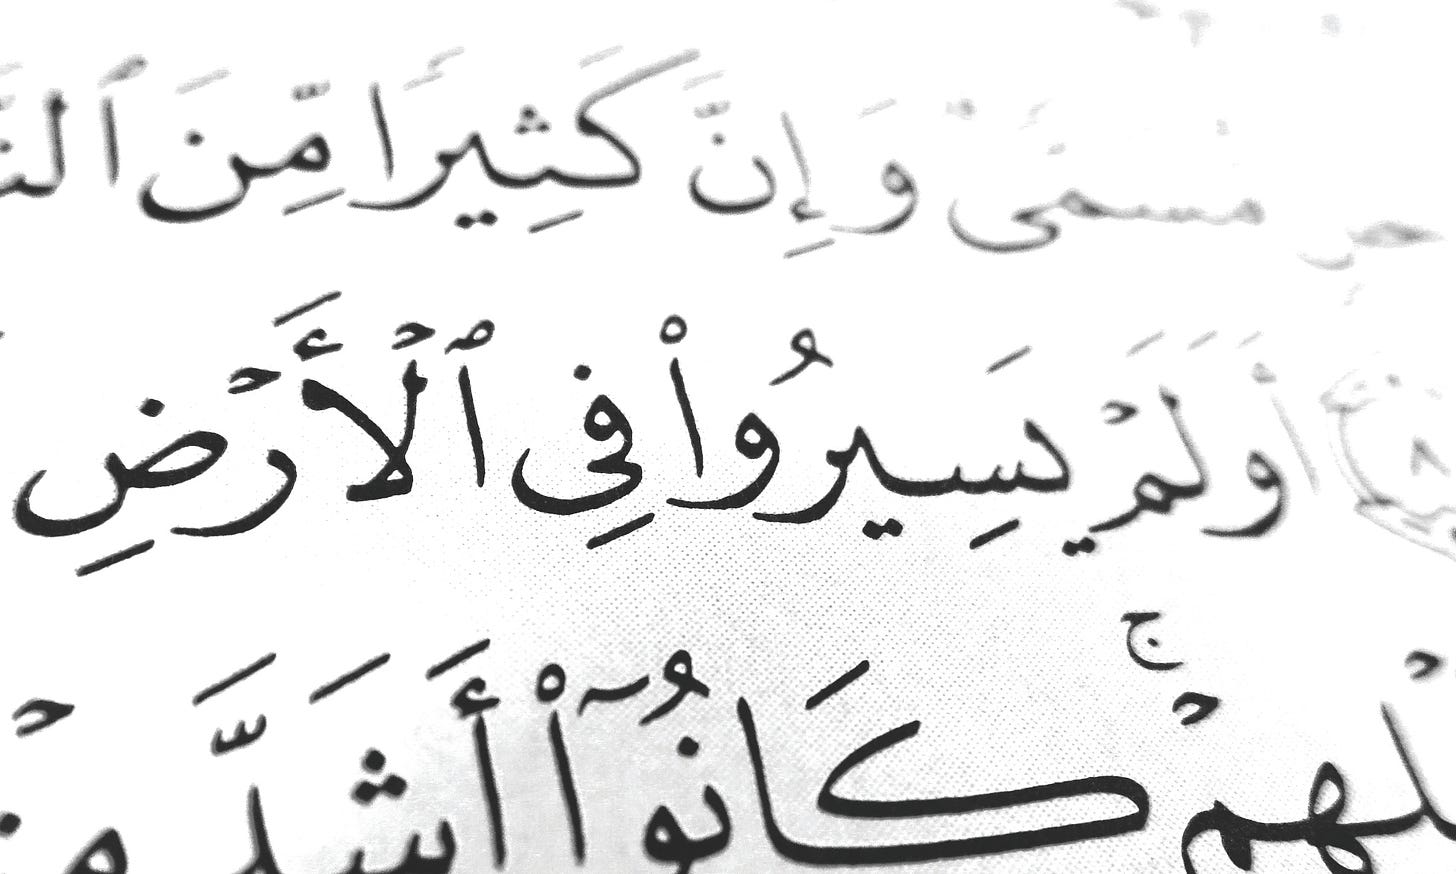 مسمى وَإِنَّ كَثِيرًا مِّنَ ٱلنَّ
أَوَلَمْ يَسِيرُوا۟ فِى ٱلْأَرْضِ
لِهِمْ ۚ كَانُوٓا۟ أَشَدَّ